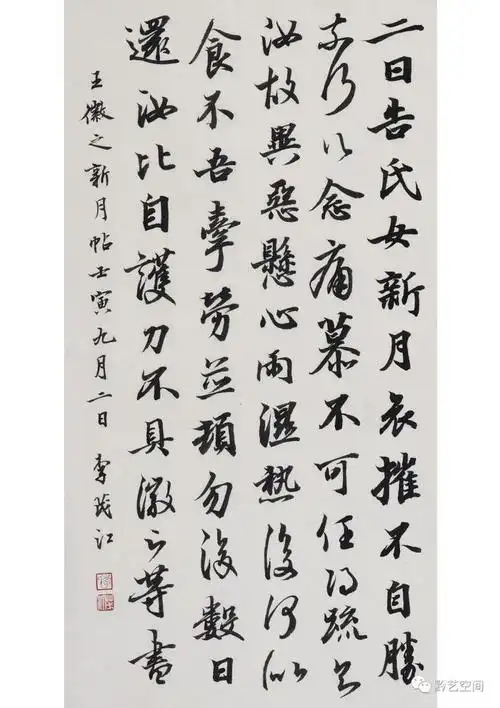 二日告氏女新月哀摧不自勝
奈何以念痛慕不可任得疏知
汝故異惡懸心雨濕熱復何似
食不吾牽勞並頓勿復數日
還汝比自護力不具徽之等書
王徽之新月帖壬寅九月二日 李茂江
黔艺空间